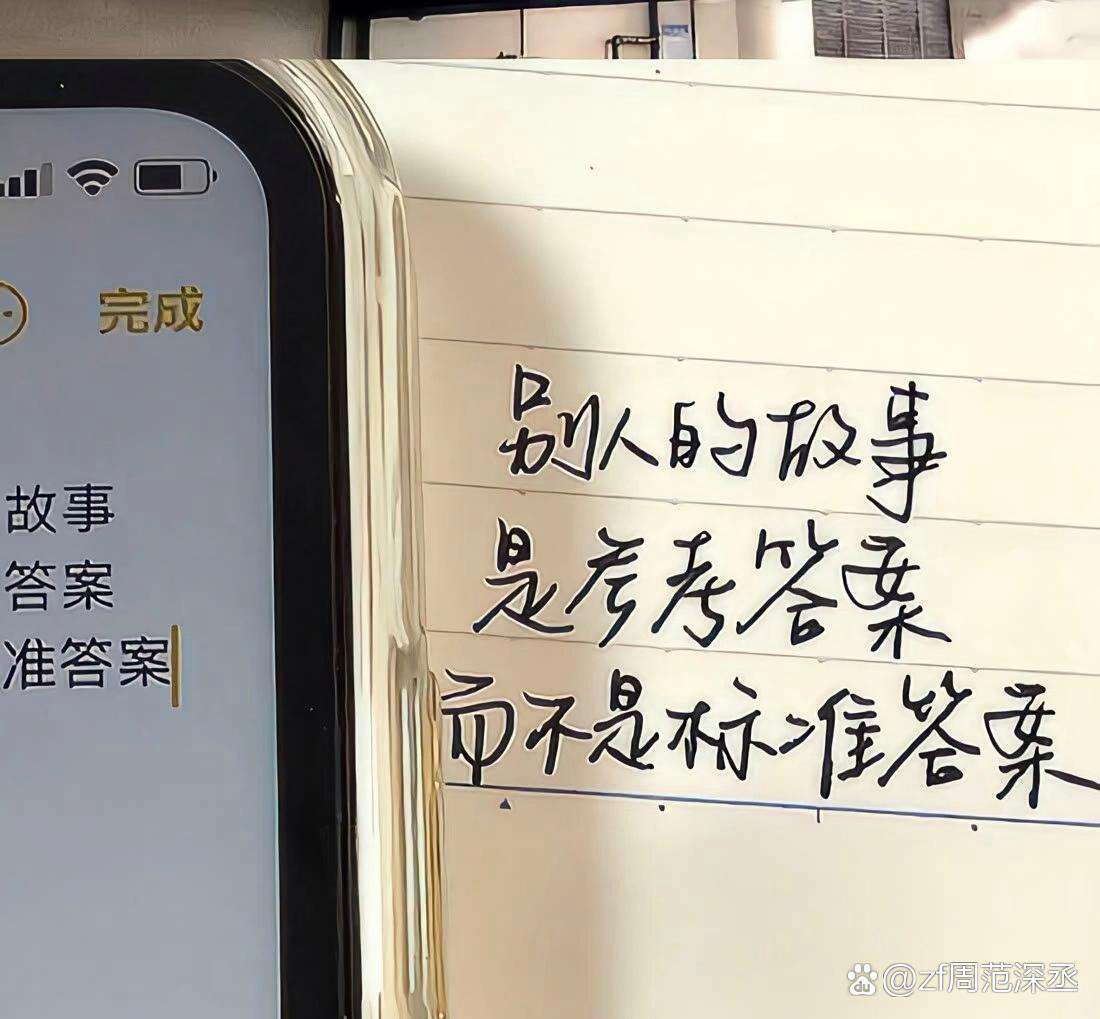 完成
故事
答案
准答案
别人的故事
是参考答案
而不是标准答案
du
@zf周范深丞